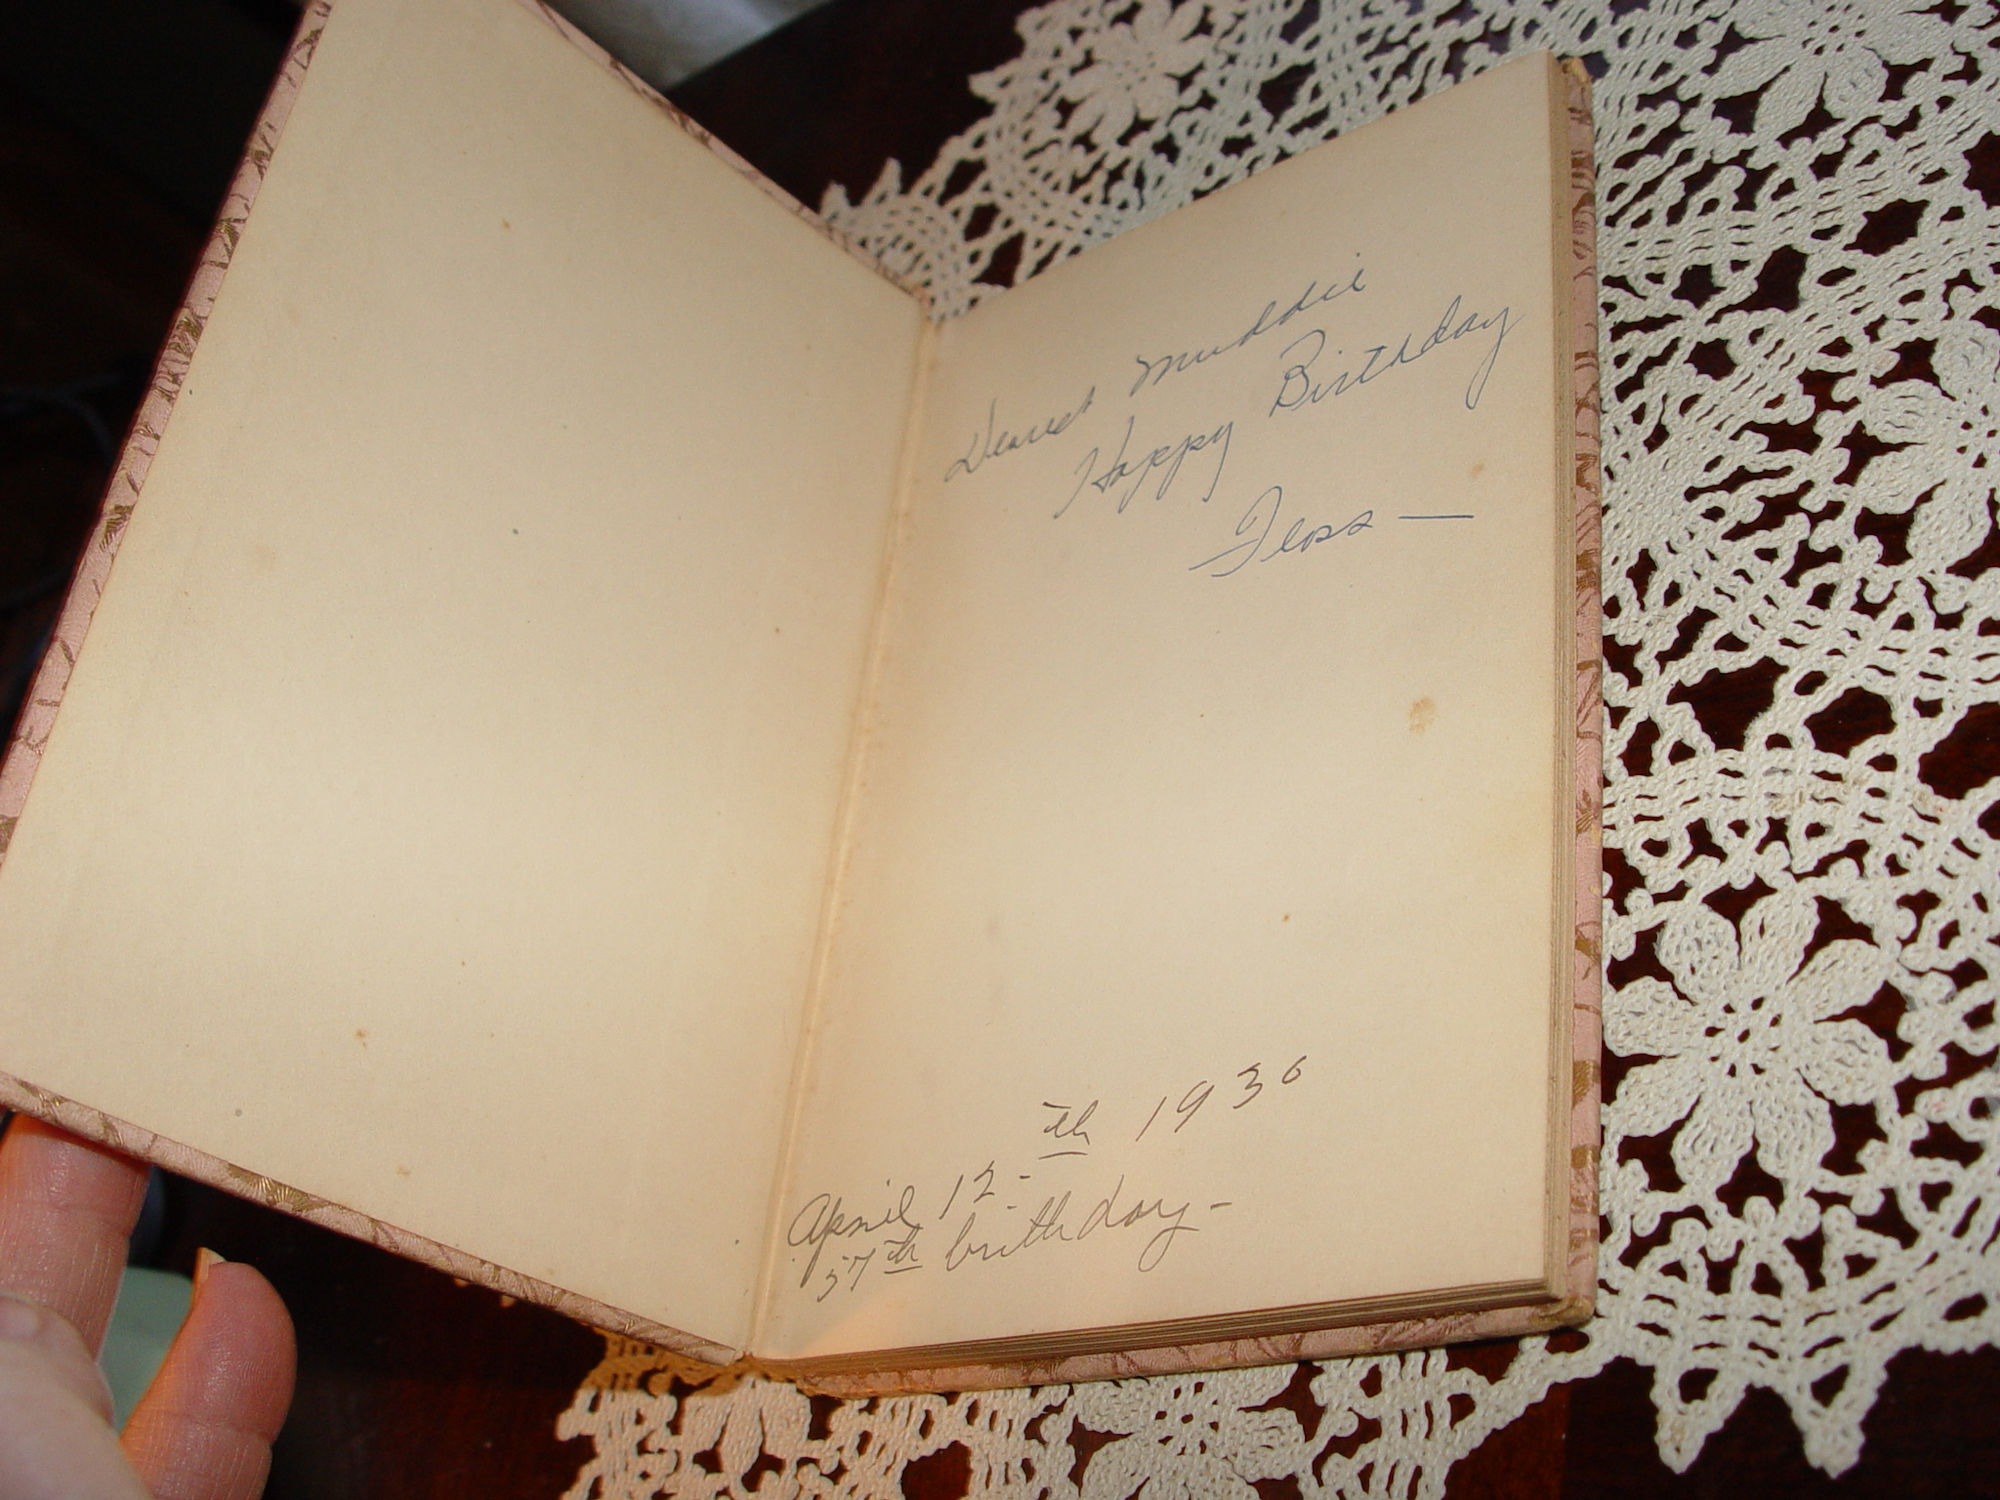 Dearest Muddie
Happy Birthday
Floss —
April 12-th 1936
57th birthday-